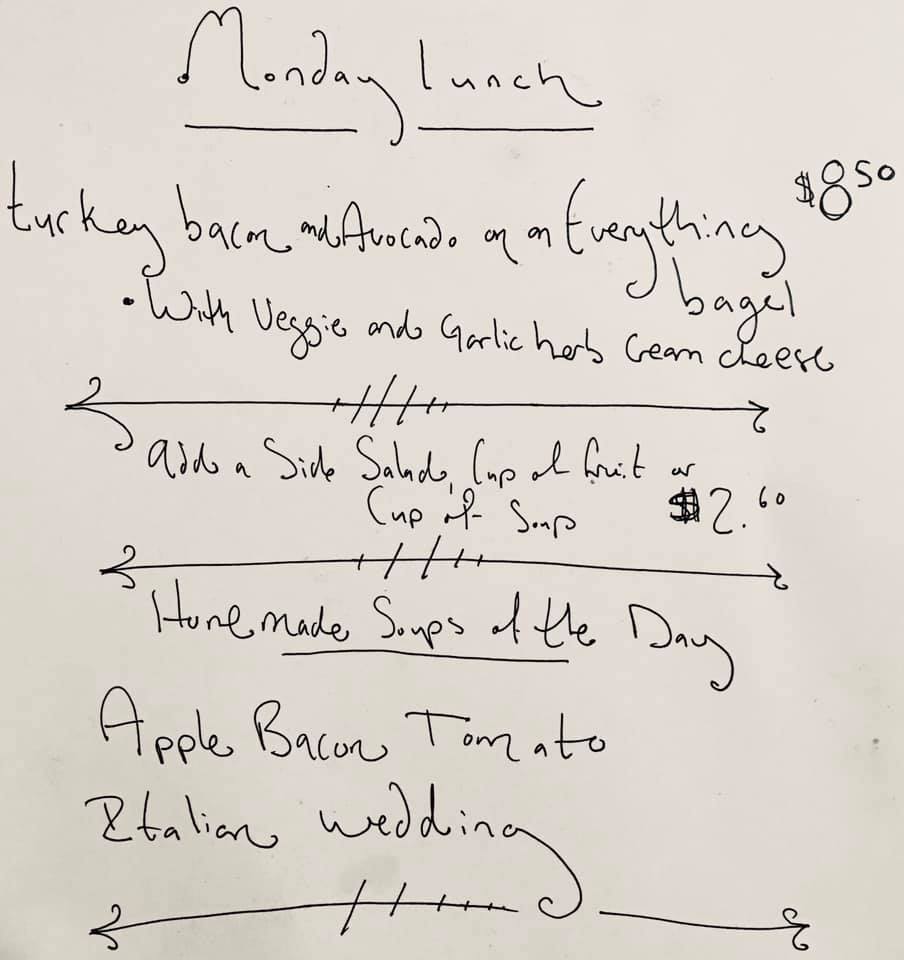 Monday lunch
turkey bacon and Avocado on an Everything $8 50
bagel
• With Veggie and Garlic herb Cream cheese
add a Side Salad, Cup of fruit or
Cup of Soup $2.60
Homemade Soups of the Day
Apple Bacon Tomato
Italian wedding